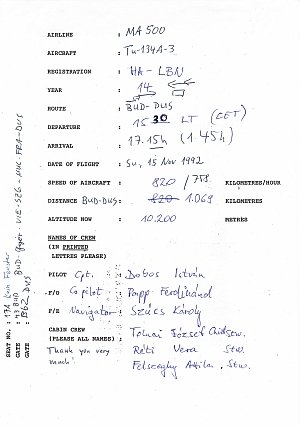 AIRLINE : MA 500
AIRCRAFT : Tu-134A-3
REGISTRATION : HA-LBN
YEAR : 14
ROUTE : BUD-DUS
DEPARTURE : 15 30 LT (CET)
ARRIVAL : 17.15h (1 45h)
DATE OF FLIGHT : Su, 15 Nov 1992
SPEED OF AIRCRAFT : 820 / 758 KILOMETRES/HOUR
DISTANCE BUD-DUS: 820 1.069 KILOMETRES
ALTITUDE NOW : 10.200 METRES
NAMES OF CREW
(IN PRINTED
LETTRES PLEASE)
PILOT Cpt. : Dobos István
F/O Copilot : Papp Ferdinánd
F/E Navigator : Szücs Károly
CABIN CREW : Tolnai József Chiefstw.
(PLEASE ALL NAMES) : Réti Vera Stw.
Thank you very much! Felszeghy Attila . Stw.
SEAT NO. : 17A
GATE : 43 BUD
GATE : B02 DUS
BUD-Győr-VIE-SZG-MUC-FRA-DUS